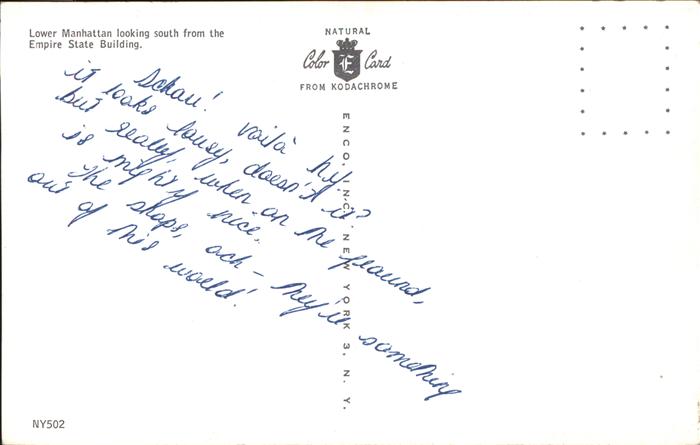 Lower Manhattan looking south from the
Empire State Building.
NATURAL
Color E Card
FROM KODACHROME
Schau! voilà ny.
it looks lousy, doesn't it?
but really, when on the ground,
is mighty nice.
The shops, ach - they're something
out of this world!
ENCO, INC. NEW YORK 3, N. Y.
NY502